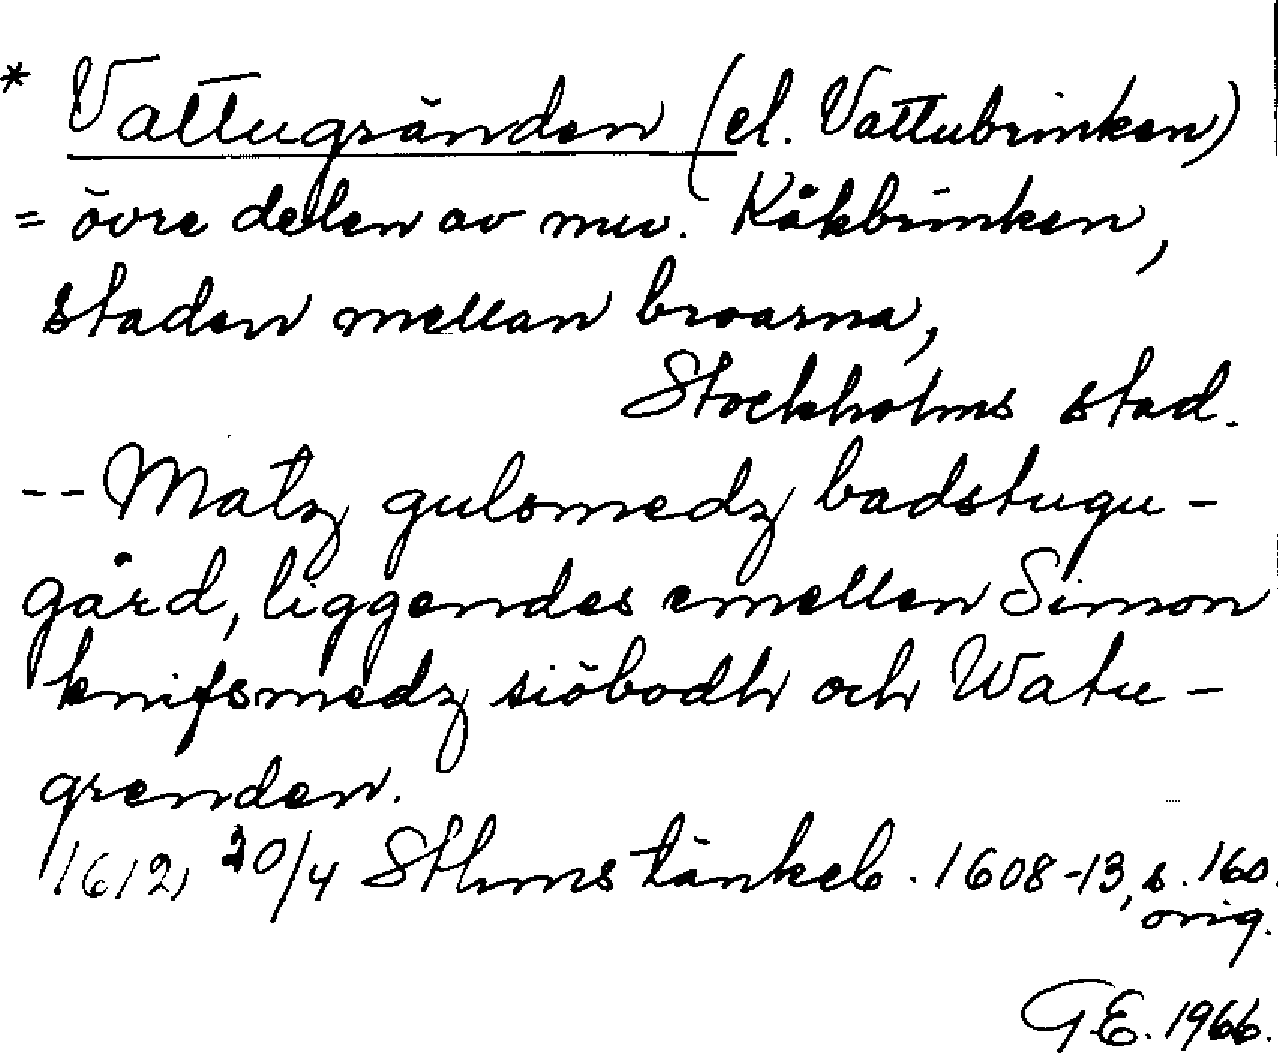 * Vattugränden (el. Vattubrinken)
= övre delen av nuv. Kåkbrinken,
staden mellan broarna,
Stockholms stad.
-- Matz gulsmedz badstugu-
gård, liggendes emellen Simon
knifsmedz siöbodh och Watu-
grenden.
1612, 20/4 Sthms tänkeb. 1608-13, s. 160
orig.
G.E. 1966.